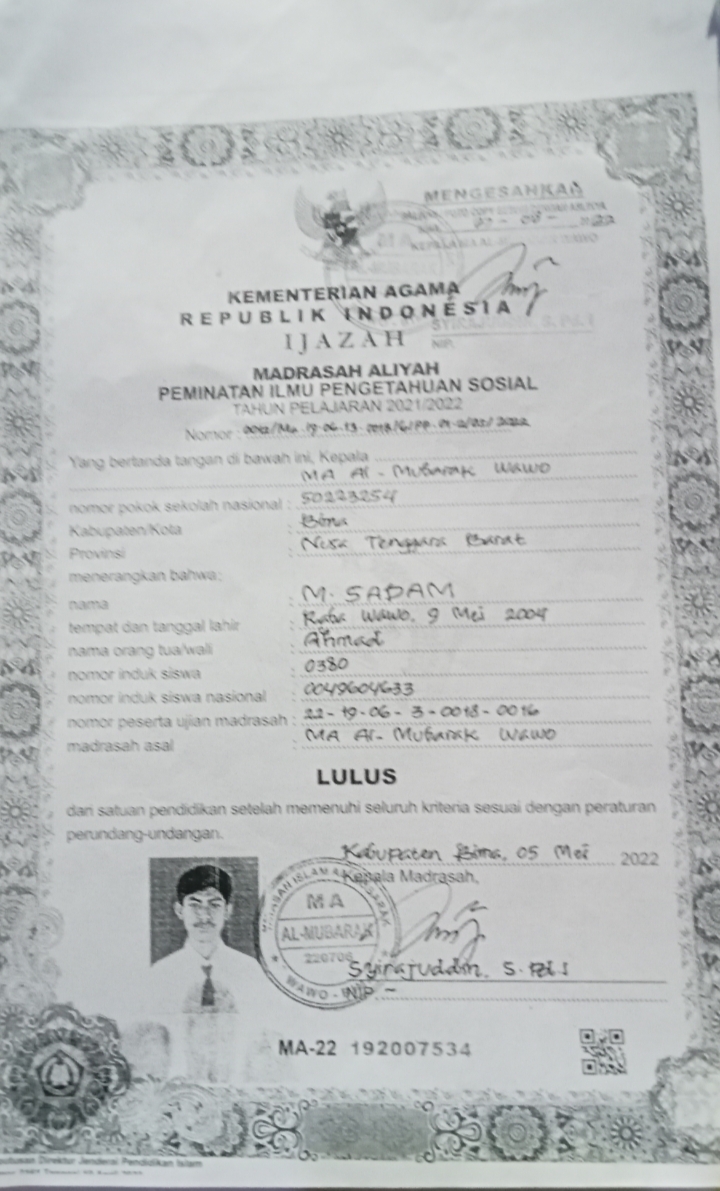 MENGESAHKAN
KEMENTERIAN AGAMA
REPUBLIK INDONESIA
IJAZAH
NIP.
MADRASAH ALIYAH
PEMINATAN ILMU PENGETAHUAN SOSIAL
TAHUN PELAJARAN 2021/2022
Nomor :
Yang bertanda tangan di bawah ini, Kepala
MA Al-Mubarak Wawo
nomor pokok sekolah nasional : 50223254
Kabupaten/Kota : Bima
Provinsi : Nusa Tenggara Barat
menerangkan bahwa:
nama : M. SADAM
tempat dan tanggal lahir : Raba Wawo, 9 Mei 2004
nama orang tua/wali : Ahmad
nomor induk siswa : 0380
nomor induk siswa nasional : 0049604633
nomor peserta ujian madrasah : 22-19-06-3-0018-0016
madrasah asal : MA Al-Mubarak Wawo
LULUS
dari satuan pendidikan setelah memenuhi seluruh kriteria sesuai dengan peraturan
perundang-undangan.
Kabupaten Bima, 05 Mei 2022
Kepala Madrasah,
MA
AL-MUBARAK
WAWO
Syirajuddin, S.Pd.I
NIP -
MA-22 192007534
Direktur Jenderal Pendidikan Islam